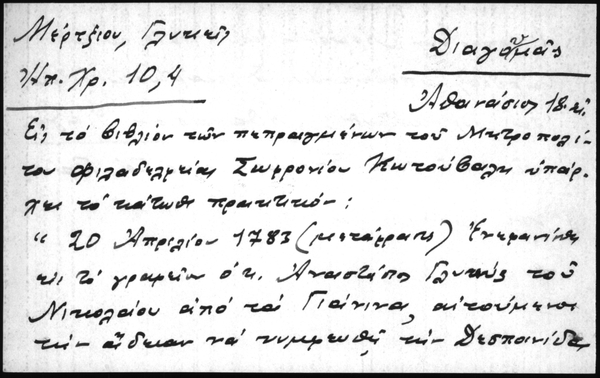 Μέρτζιου, Γλυκεῖς
Ἠπ. Χρ. 10,4
Ἀθανάσιος 18. αἰ.
Εἰς τό βιβλίον τῶν πεπραγμένων τοῦ Μητροπολί-
του Φιλαδελφείας Σωφρονίου Κουτούβαλη ὑπάρ-
χει τό κάτωθι πρακτικόν:
" 20 Ἀπριλίου 1783 (μετάφρασις) Ἐνεφανίσθη
εἰς τό γραφεῖον ὁ κ. Ἀναστάσιος Γλυκύς τοῦ
Νικολαίου ἀπό τά Γιάνινα, αἰτούμενος
τήν ἄδειαν νά νυμφευθῇ τήν Δεσποινίδα